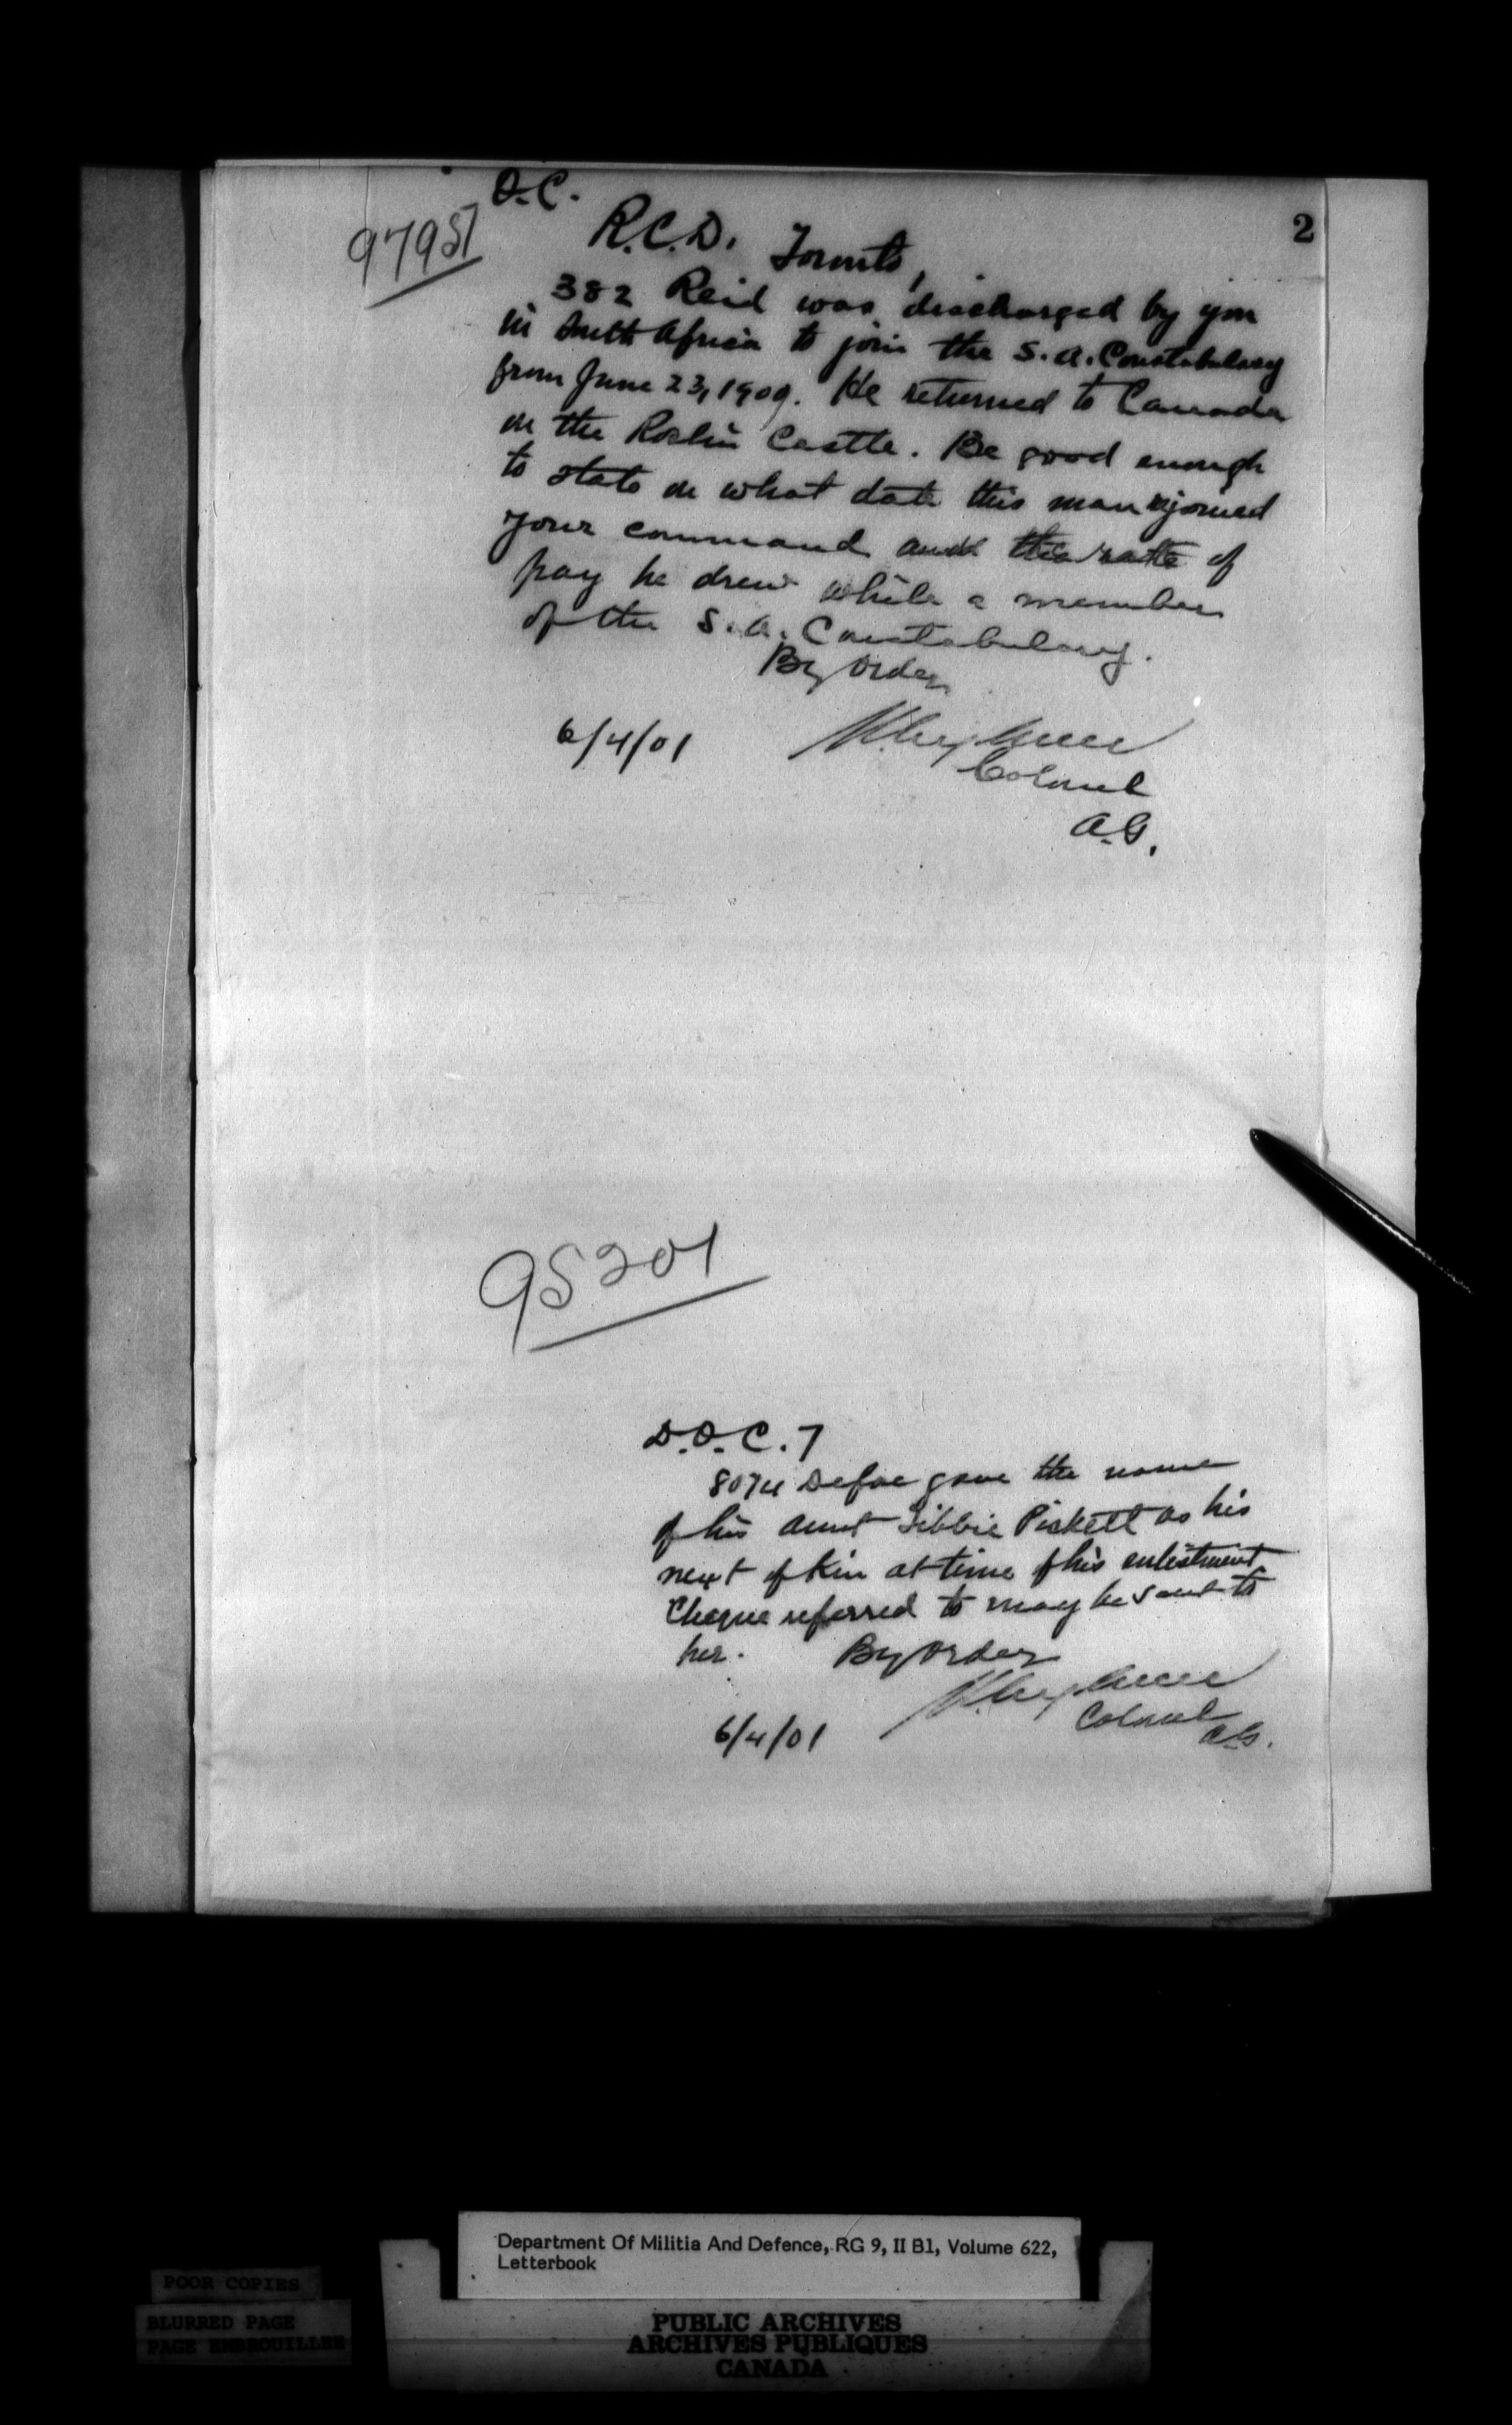 2
O.C.
97957
R.C.D. Toronto,
382 Reid was discharged by you
in South Africa to join the S.A. Constabulary
from June 23, 1900. He returned to Canada
on the Roslin Castle. Be good enough
to state on what date this man rejoined
your command and the rate of
pay he drew while a member
of the S.A. Constabulary.
By Order
6/4/01
Colonel
A.G.
95201
D.O.C. 7
8074 Defoe gave the name
of his aunt Libbie Pickett as his
next of kin at time of his enlistment
Cheque referred to may be sent to
her. By Order
6/4/01
Colonel
A.G.
Department Of Militia And Defence, RG 9, II B1, Volume 622,
Letterbook
POOR COPIES
BLURRED PAGE
PAGE EMBROUILLEE
PUBLIC ARCHIVES
ARCHIVES PUBLIQUES
CANADA